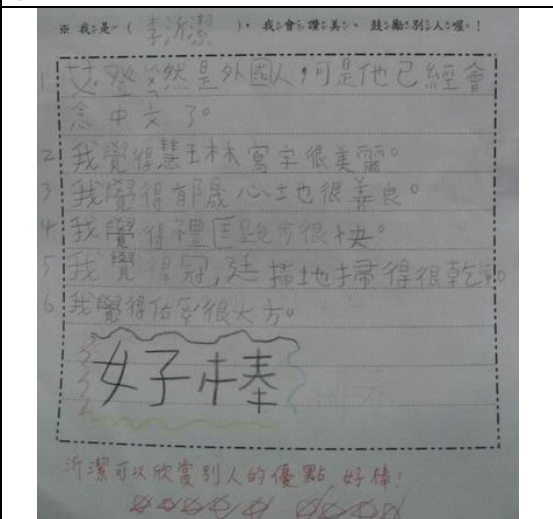 ※ 我是(李沂潔)。我會讚美、鼓勵別人喔!
1 艾登雖然是外國人,可是他已經會
念中文了。
2 我覺得慧琳寫字很美麗。
3 我覺得郁晟心地很善良。
4 我覺得禮匡跑步很快。
5 我覺得冠廷掃地掃得很乾淨。
6 我覺得佑很大方。
好棒
沂潔可以欣賞別人的優點,好棒!